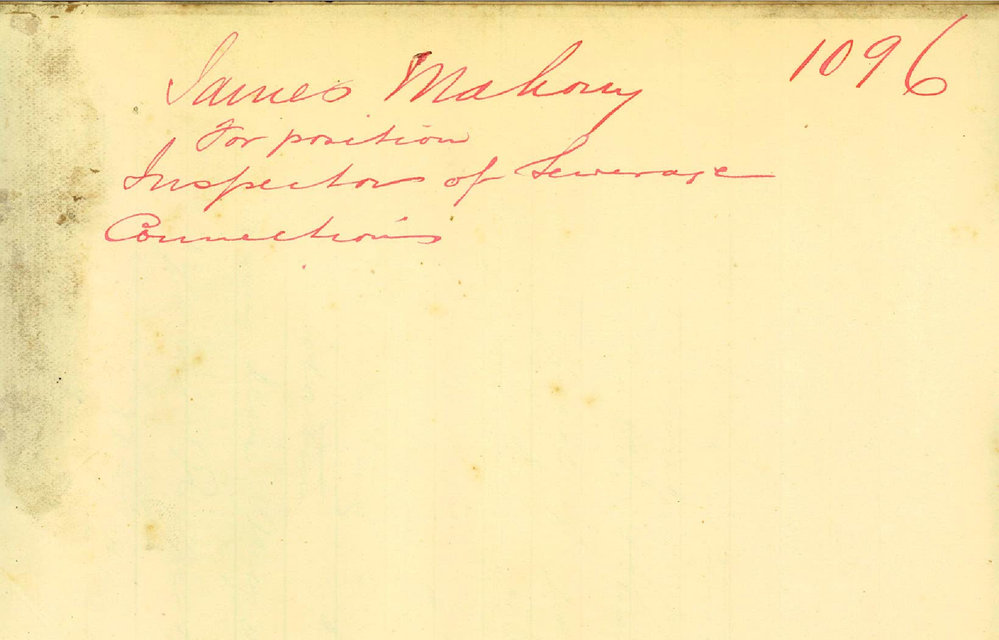 1096
James Mahony
For position
Inspector of Sewerage
Connections